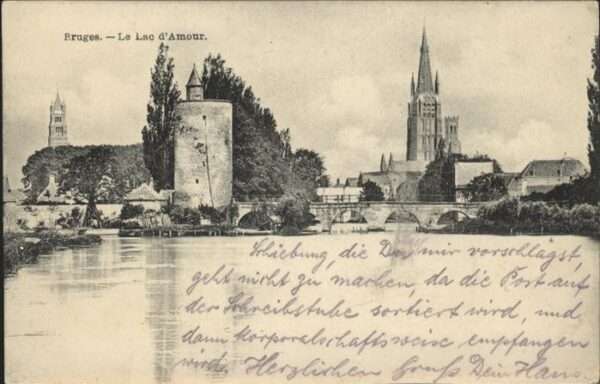 Bruges. — Le Lac d'Amour.
Schiebung, die Du mir vorschlägst,
geht nicht zu machen, da die Post auf
der Schreibstube sortiert wird, und
dann Korporalschaftsweise empfangen
wird. Herzlichen Gruß Dein Hans.